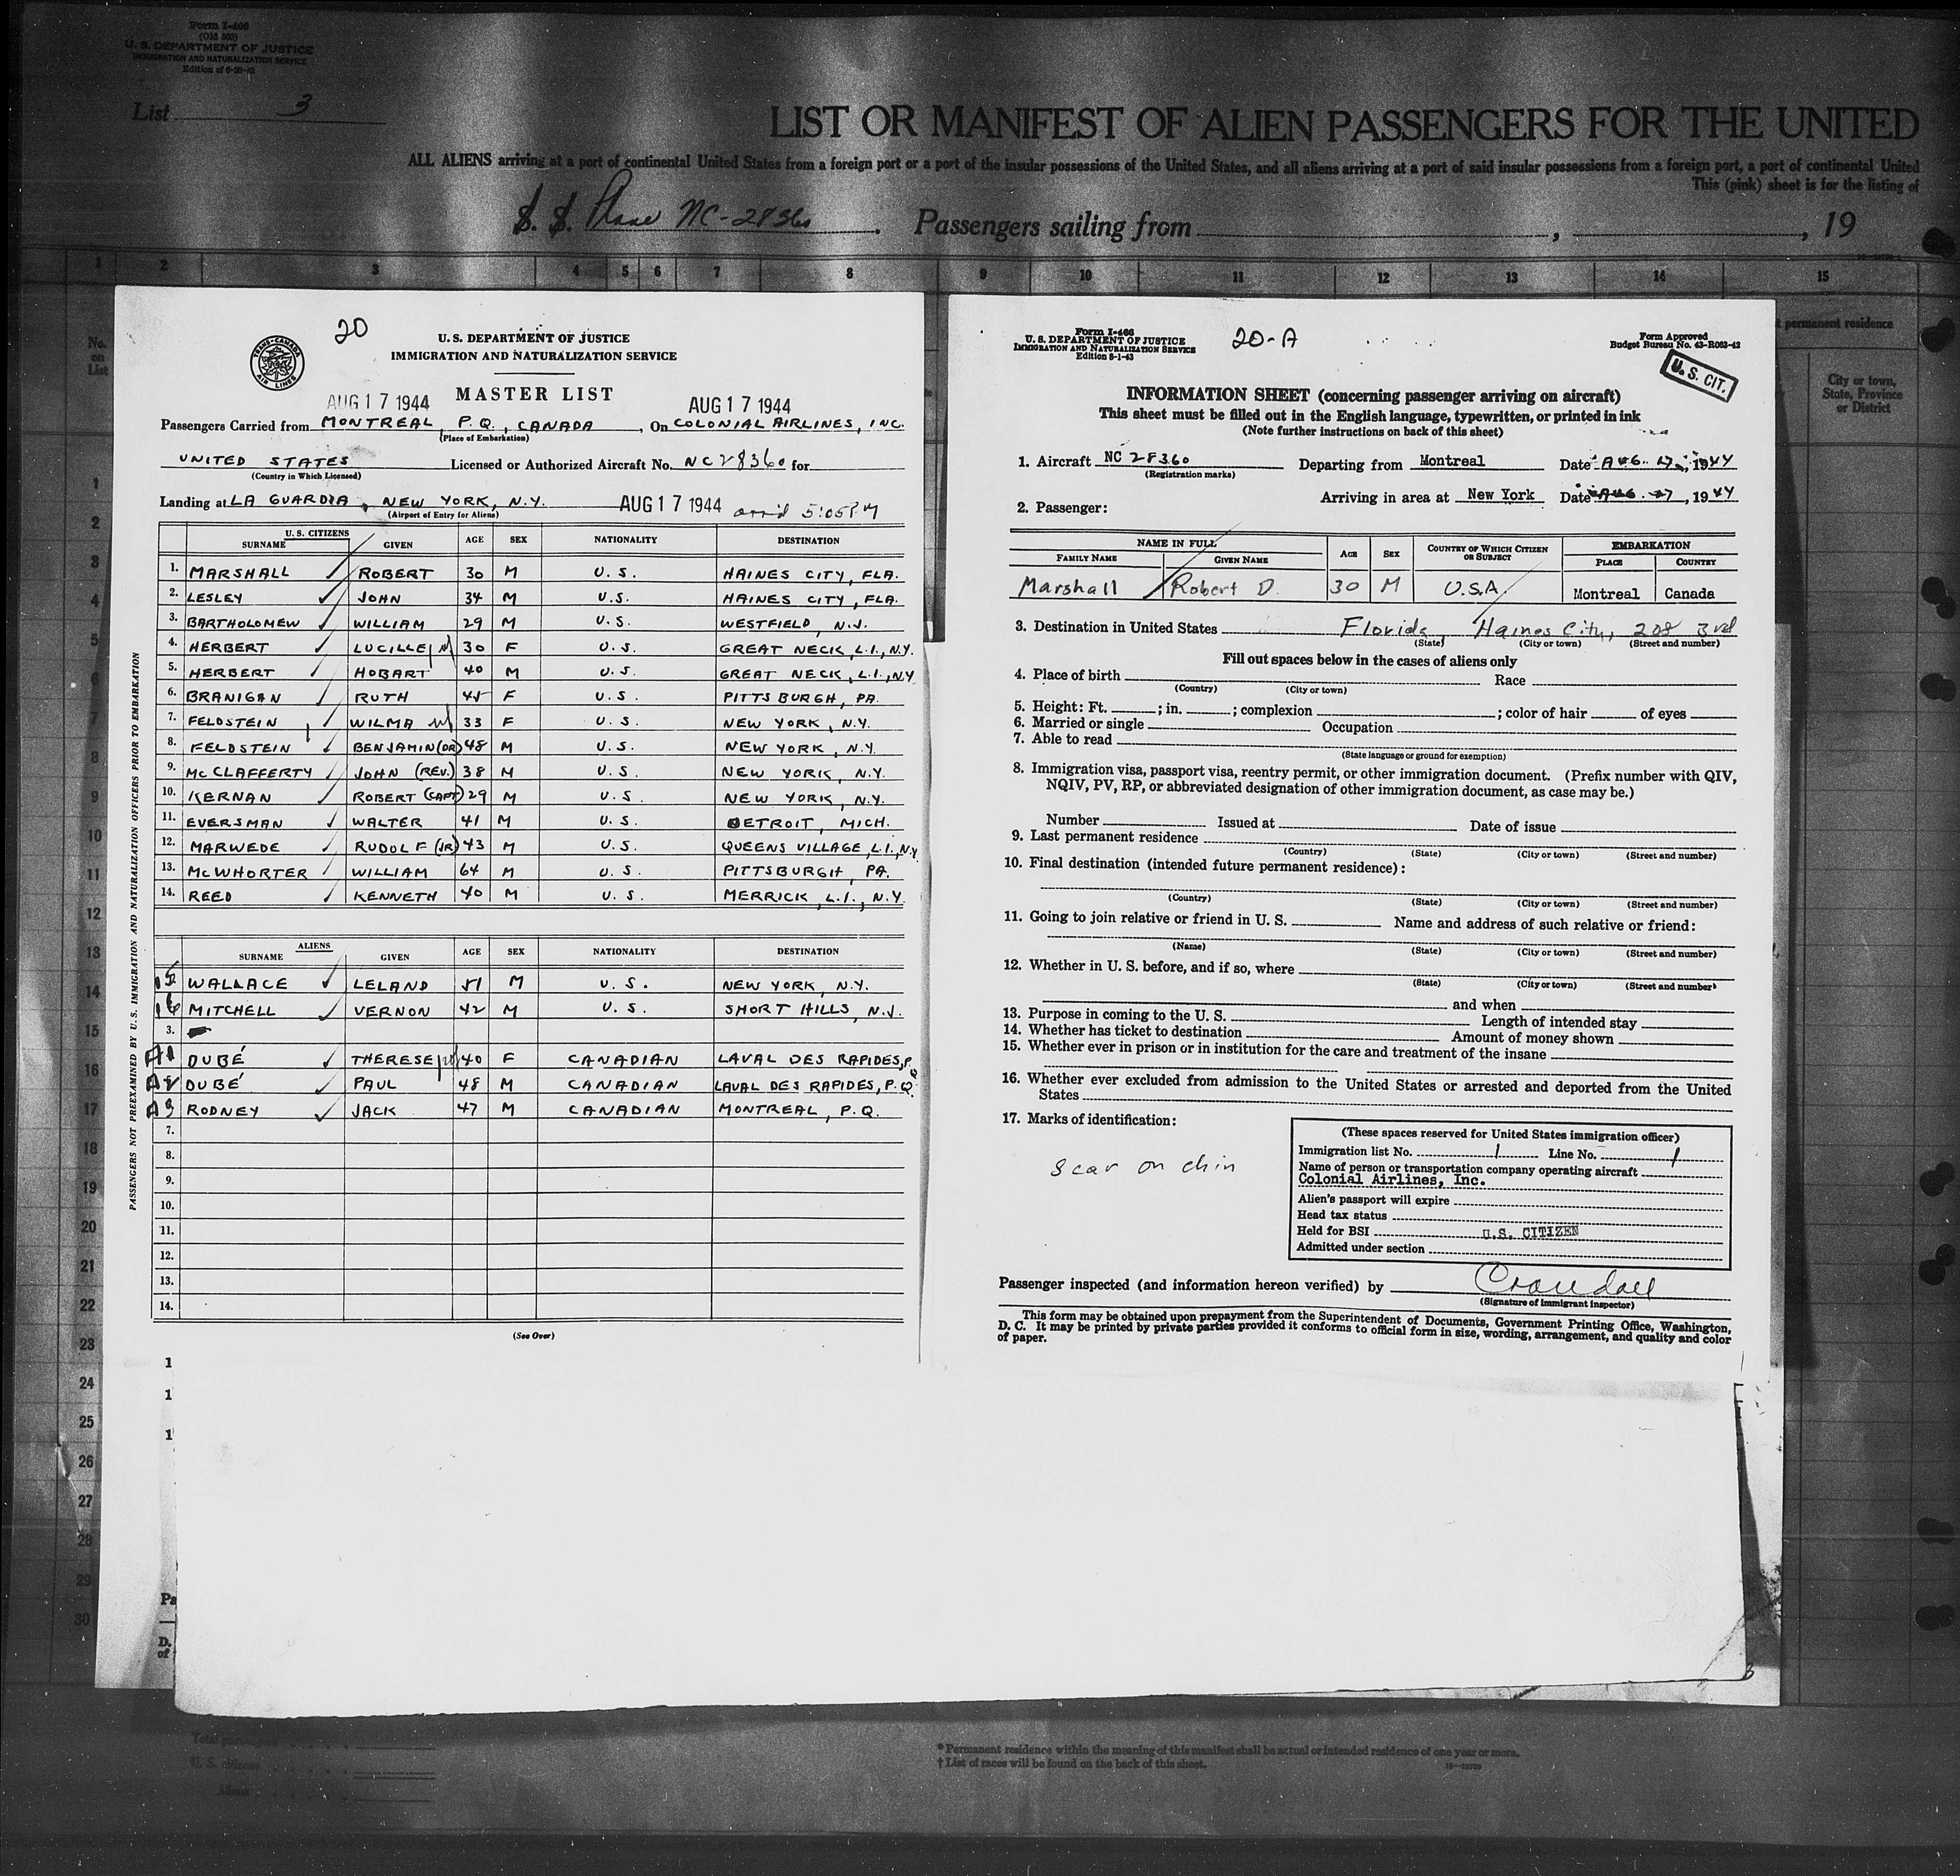 Form I-400
(Old 500)
U. S. DEPARTMENT OF JUSTICE
IMMIGRATION AND NATURALIZATION SERVICE
Edition of 6-20-42
List 3
LIST OR MANIFEST OF ALIEN PASSENGERS FOR THE UNITED
ALL ALIENS arriving at a port of continental United States from a foreign port or a port of the insular possessions of the United States, and all aliens arriving at a port of said insular possessions from a foreign port, a port of continental United
This (pink) sheet is for the listing of
S. S. Plane NC-28360. Passengers sailing from , , 19
1 2 3 4 5 6 7 8 9 10 11 12 13 14 15
No. on List
permanent residence
City or town, State, Province or District
TRANS-CANADA AIR LINES
20
U. S. DEPARTMENT OF JUSTICE
IMMIGRATION AND NATURALIZATION SERVICE
MASTER LIST
AUG 17 1944 AUG 17 1944
Passengers Carried from MONTREAL, P. Q., CANADA, On COLONIAL AIRLINES, INC.
(Place of Embarkation)
UNITED STATES Licensed or Authorized Aircraft No. NC28360 for
(Country in Which Licensed)
Landing at LA GUARDIA, NEW YORK, N.Y. AUG 17 1944 arr'd 5:05PM
(Airport of Entry for Aliens)
U. S. CITIZENS
SURNAME GIVEN AGE SEX NATIONALITY DESTINATION
1. MARSHALL ROBERT 30 M U. S. HAINES CITY, FLA.
2. LESLEY JOHN 34 M U.S. HAINES CITY, FLA.
3. BARTHOLOMEW WILLIAM 29 M U. S. WESTFIELD, N.J.
4. HERBERT LUCILLE M 30 F U. S. GREAT NECK, L.I., N.Y.
5. HERBERT HOBART 40 M U. S. GREAT NECK, L.I., N.Y
6. BRANIGAN RUTH 45 F U. S. PITTSBURGH, PA.
7. FELDSTEIN WILMA M 33 F U. S. NEW YORK, N.Y.
8. FELDSTEIN BENJAMIN (DR) 48 M U. S. NEW YORK, N.Y.
9. McCLAFFERTY JOHN (REV.) 38 M U. S. NEW YORK, N.Y.
10. KERNAN ROBERT (CAPT) 29 M U. S. NEW YORK, N.Y.
11. EVERSMAN WALTER 41 M U. S. DETROIT, MICH.
12. MARWEDE RUDOLF (JR) 43 M U. S. QUEENS VILLAGE, L.I., N.Y
13. McWHORTER WILLIAM 64 M U. S. PITTSBURGH, PA.
14. REED KENNETH 40 M U. S. MERRICK, L.I., N.Y.
ALIENS
SURNAME GIVEN AGE SEX NATIONALITY DESTINATION
15 WALLACE LELAND 51 M U. S. NEW YORK, N.Y.
16 MITCHELL VERNON 42 M U. S. SHORT HILLS, N.J.
3.
A1 DUBÉ THERESE M 40 F CANADIAN LAVAL DES RAPIDES, P.Q
A2 DUBÉ PAUL 48 M CANADIAN LAVAL DES RAPIDES, P.Q.
A3 RODNEY JACK 47 M CANADIAN MONTREAL, P.Q.
7.
8.
9.
10.
11.
12.
13.
14.
(See Over)
PASSENGERS NOT PREEXAMINED BY U. S. IMMIGRATION AND NATURALIZATION OFFICERS PRIOR TO EMBARKATION
Form I-466
U. S. DEPARTMENT OF JUSTICE
IMMIGRATION AND NATURALIZATION SERVICE
Edition 8-1-43
20-A
Form Approved
Budget Bureau No. 43-R063-42
U. S. CIT.
INFORMATION SHEET (concerning passenger arriving on aircraft)
This sheet must be filled out in the English language, typewritten, or printed in ink
(Note further instructions on back of this sheet)
1. Aircraft NC 28360 Departing from Montreal Date AUG. 17, 1944
(Registration marks)
Arriving in area at New York Date AUG. 17, 1944
2. Passenger:
NAME IN FULL AGE SEX COUNTRY OF WHICH CITIZEN OR SUBJECT EMBARKATION
FAMILY NAME GIVEN NAME PLACE COUNTRY
Marshall Robert D. 30 M U.S.A. Montreal Canada
3. Destination in United States Florida, Haines City, 208 3rd
(State) (City or town) (Street and number)
Fill out spaces below in the cases of aliens only
4. Place of birth Race
(Country) (City or town)
5. Height: Ft. ; in. ; complexion ; color of hair of eyes
6. Married or single Occupation
7. Able to read
(State language or ground for exemption)
8. Immigration visa, passport visa, reentry permit, or other immigration document. (Prefix number with QIV,
NQIV, PV, RP, or abbreviated designation of other immigration document, as case may be.)
Number Issued at Date of issue
9. Last permanent residence
(Country) (State) (City or town) (Street and number)
10. Final destination (intended future permanent residence):
(Country) (State) (City or town) (Street and number)
11. Going to join relative or friend in U. S. Name and address of such relative or friend:
(Name) (State) (City or town) (Street and number)
12. Whether in U. S. before, and if so, where
(State) (City or town) (Street and number)
and when
13. Purpose in coming to the U. S. Length of intended stay
14. Whether has ticket to destination Amount of money shown
15. Whether ever in prison or in institution for the care and treatment of the insane
16. Whether ever excluded from admission to the United States or arrested and deported from the United
States
17. Marks of identification:
scar on chin
(These spaces reserved for United States immigration officer)
Immigration list No. 1 Line No. 1
Name of person or transportation company operating aircraft
Colonial Airlines, Inc.
Alien's passport will expire
Head tax status
Held for BSI U.S. CITIZEN
Admitted under section
Passenger inspected (and information hereon verified) by Crandall
(Signature of immigrant inspector)
This form may be obtained upon prepayment from the Superintendent of Documents, Government Printing Office, Washington,
D. C. It may be printed by private parties provided it conforms to official form in size, wording, arrangement, and quality and color
of paper.
1
2
3
4
5
6
7
8
9
10
11
12
13
14
15
16
17
18
19
20
21
22
23
24
25
26
27
28
29
30
1
1
1
Pa
D.
of
Total passengers
U. S. citizens
Aliens
* Permanent residence within the meaning of this manifest shall be actual or intended residence of one year or more.
† List of races will be found on the back of this sheet.